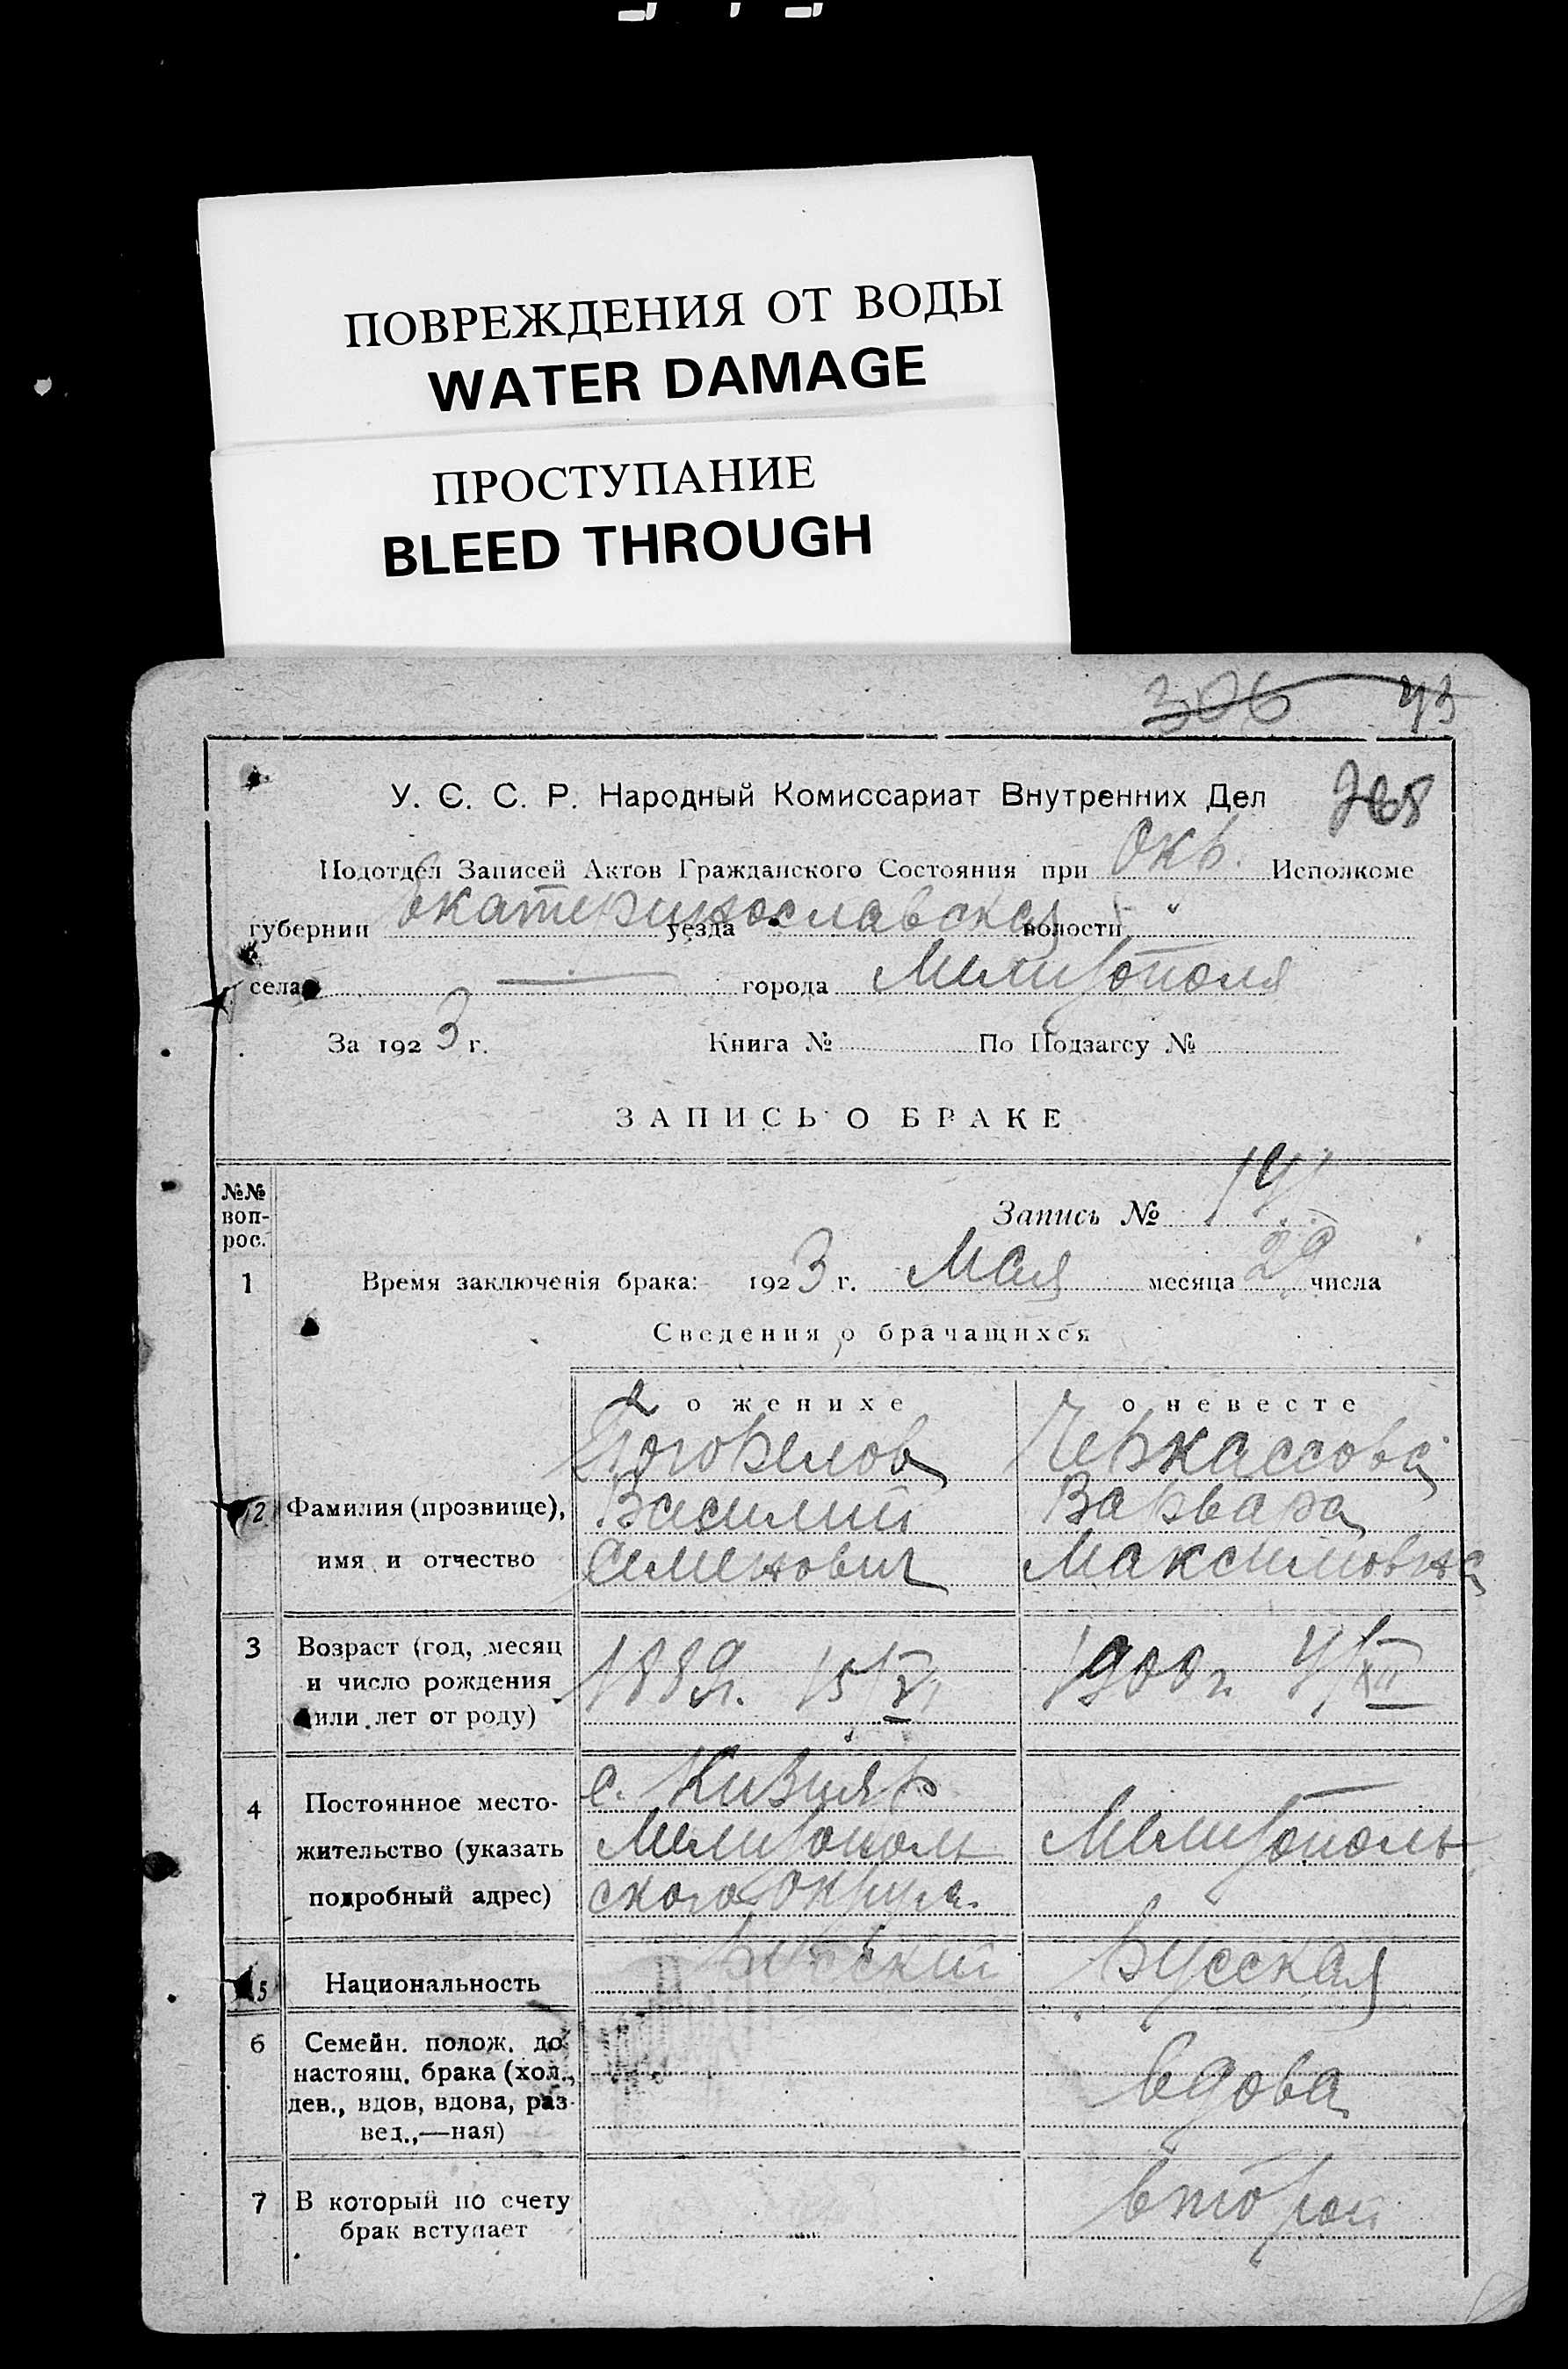 ПОВРЕЖДЕНИЯ ОТ ВОДЫ
WATER DAMAGE
ПРОСТУПАНИЕ
BLEED THROUGH
306 43
У. Є. С. Р. Народный Комиссариат Внутренних Дел
Подотдел Записей Актов Гражданского Состояния при Окр. Исполкоме
губернии Екатеринославская уезда волости "
села — города Мелитополя
За 1923 г. Книга № По Подзагсу №
ЗАПИСЬ О БРАКЕ
№№ воп-рос.
Запись №
1 Время заключенія брака: 1923 г. Мая месяца 29 числа
Сведения о брачащихся
о женихе о невесте
Погорелов Черкассова
2 Фамилия (прозвище), Василий Варвара
имя и отчество Семенович Максимовна
3 Возраст (год, месяц
и число рождения 1889г. 1900г. 4/XII
или лет от роду)
с. Кизияр
4 Постоянное место-
жительство (указать Мелитополь Мелитополь
подробный адрес) ского округа.
5 Национальность Русский Русская
6 Семейн. полож. до
настоящ. брака (хол., вдова
дев., вдов, вдова, раз-
вед.,—ная)
7 В который по счету второй
брак вступает